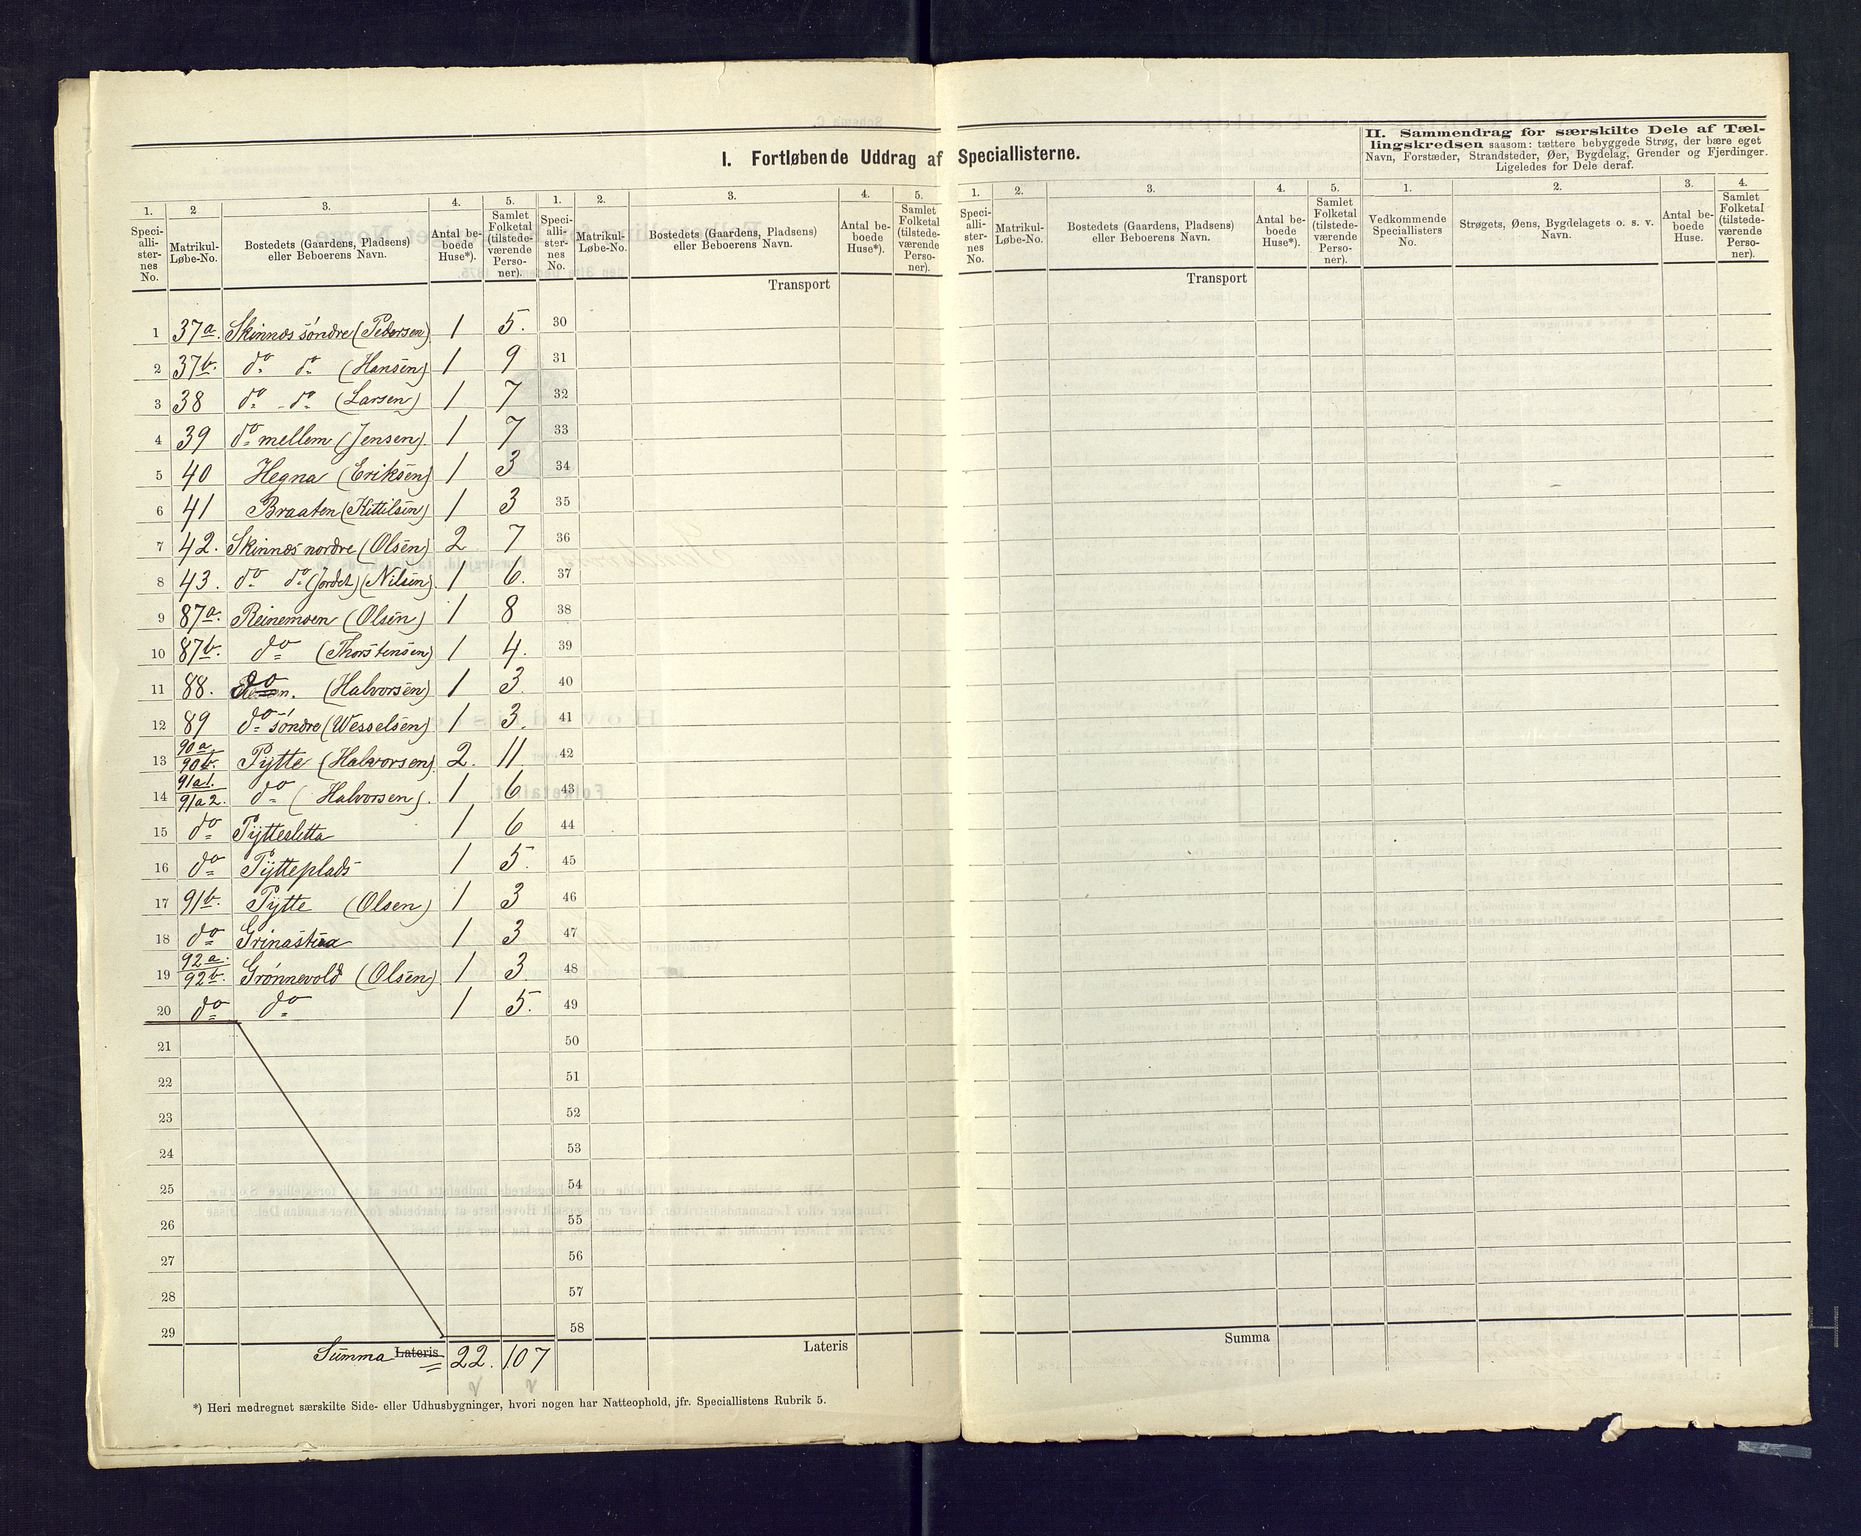 I. Fortløbende Uddrag af Speciallisterne.
II. Sammendrag for særskilte Dele af Tæl-
lingskredsen saasom: tættere bebyggede Strøg, der bære eget
Navn, Forstæder, Strandsteder, Øer, Bygdelag, Grender og Fjerdinger.
Ligeledes for Dele deraf.
1. 2 3. 4. 5. 1. 2. 3. 4. 5. 1. 2. 3. 4. 5. 1. 2. 3. 4.
Speci-
allister-
nes
No.
Matrikul-
Løbe-No.
Bostedets (Gaardens, Pladsens)
eller Beboerens Navn.
Antal be-
boede
Huse*).
Samlet
Folketal
(tilstede-
værende
Perso-
ner).
Speci-
alli-
ster-
nes
No.
Matrikul-
Løbe-No.
Bostedets (Gaardens, Pladsens)
eller Beboerens Navn.
Antal be-
boede
Huse*).
Samlet
Folketal
(tilstede-
værende
Perso-
ner).
Speci-
alli-
ster-
nes
No.
Matrikul-
Løbe-No.
Bostedets (Gaardens, Pladsens)
eller Beboerens Navn.
Antal be-
boede
Huse*).
Samlet
Folketal
(tilstede-
værende
Perso-
ner).
Vedkommende
Speciallisters
No.
Strøgets, Øens, Bygdelagets o. s. v.
Navn.
Antal be-
boede
Huse.
Samlet
Folketal
(tilstede-
værende
Perso-
ner).
Transport Transport
1 37a. Skinnæs söndre (Pedersen) 1 5. 30
2 37b. do do (Hansen) 1 9 31
3 38 do - do (Larsen) 1 7 32
4 39 do mellem (Jensen). 1 7 33
5 40 Hegna (Eriksen) 1 3 34
6 41 Braaten (Kittilsen) 1 3 35
7 42. Skinnæs nordre (Olsen) 2 7 36
8 43. do do (Jordet) (Nilsen) 1 6. 37
9 87a. Reinemoen (Olsen) 1 8 38
10 87b. do (Thorstensen) 1 4. 39
11 88. do (Halvorsen) 1 3. 40
12 89 do söndre (Wesselsen) 1 3. 41
13 90a. 90b. Pytte (Halvorsen) 2. 11. 42
14 91a1. 91a2. do (Halvorsen). 1 6 43
15 do Pyttesletta 1 6 44
16 do Pytteplads 1 5. 45
17 91b. Pytte (Olsen) 1 3 46
18 do Grinastua 1 3 47
19 92a. 92b. Grønnevold (Olsen) 1 3. 48
20 do do 1 5. 49
21 50
22 51
23 52
24 53
25 54
26 55
27 56
28 57
29 58
Summa Lateris 22. 107 Lateris Summa
*) Heri medregnet særskilte Side- eller Udhusbygninger, hvori nogen har Natteophold, jfr. Speciallistens Rubrik 5.